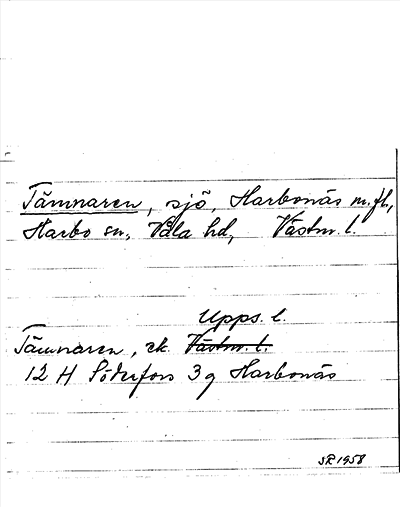 Tämnaren, sjö, Harbonäs m.fl.,
Harbo sn, Våla hd, Västm. l.
Upps. l.
Tämnaren, ek. Västm. l.
12 H Söderfors 3g Harbonäs
SR 1958